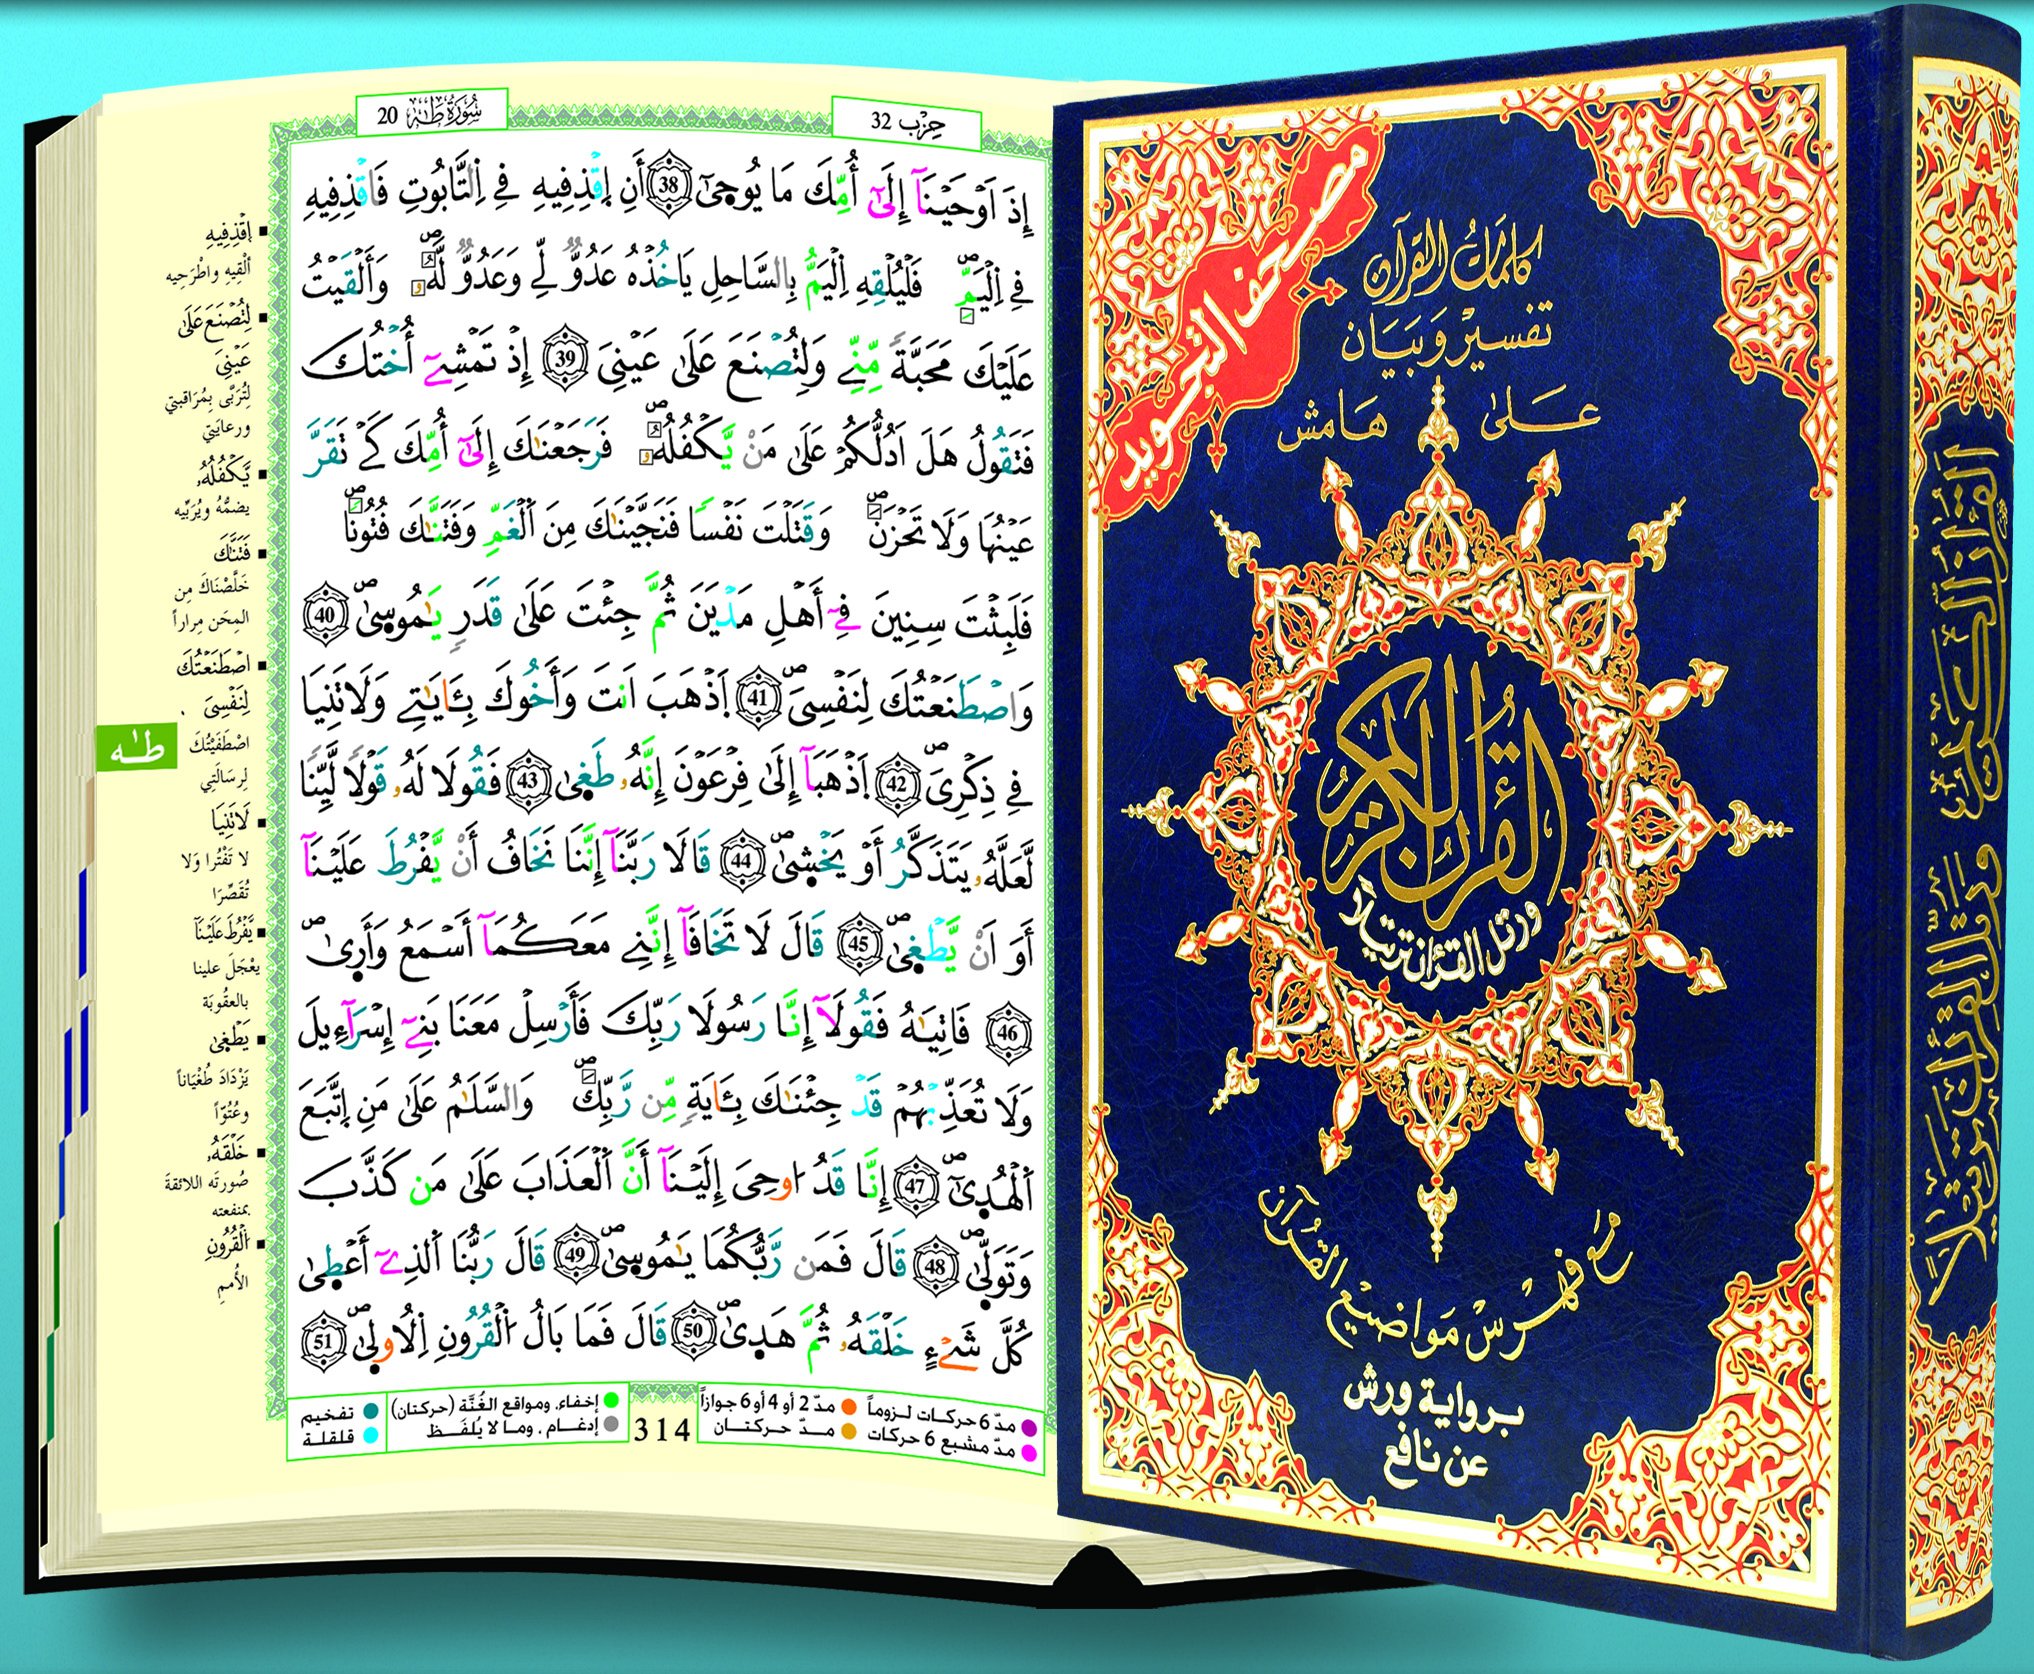 سُورَةُ طَهَ 20
حِزْب 32
إِذَ اَوْحَيْنَآ إِلَىٰٓ أُمِّكَ مَا يُوحِىٰٓ 38 أَنِ اِقْذِفِيهِ فِے اِلتَّابُوتِ فَاقْذِفِيهِ
فِے اِلْيَمِّۖ فَلْيُلْقِهِ اِلْيَمُّ بِالسَّاحِلِ يَاخُذْهُ عَدُوّٞ لِّے وَعَدُوّٞ لَّهُۥۖ وَأَلْقَيْتُ
عَلَيْكَ مَحَبَّةٗ مِّنِّے وَلِتُصْنَعَ عَلَىٰ عَيْنِيَ 39 إِذْ تَمْشِےٓ أُخْتُكَ
فَتَقُولُ هَلَ اَدُلُّكُمْ عَلَىٰ مَنْ يَّكْفُلُهُۥۖ فَرَجَعْنَٰكَ إِلَىٰٓ أُمِّكَ كَےْ تَقَرَّ
عَيْنُهَا وَلَا تَحْزَنَۖ وَقَتَلْتَ نَفْسٗا فَنَجَّيْنَٰكَ مِنَ اَلْغَمِّ وَفَتَنَّٰكَ فُتُونٗاۖ
فَلَبِثْتَ سِنِينَ فِےٓ أَهْلِ مَدْيَنَ ثُمَّ جِئْتَ عَلَىٰ قَدَرٖ يَٰمُوسِىٰۖ 40
وَاصْطَنَعْتُكَ لِنَفْسِيَۖ 41 اَذْهَبَ اَنتَ وَأَخُوكَ بِـَٔايَٰتِے وَلَا تَنِيَا
فِے ذِكْرِيَۖ 42 اَذْهَبَآ إِلَىٰ فِرْعَوْنَ إِنَّهُۥ طَغِىٰۖ 43 فَقُولَا لَهُۥ قَوْلٗا لَّيِّنٗا
لَّعَلَّهُۥ يَتَذَكَّرُ أَوْ يَخْشِىٰۖ 44 قَالَا رَبَّنَآ إِنَّنَا نَخَافُ أَنْ يَّفْرُطَ عَلَيْنَآ
أَوَ اَنْ يَّطْغِىٰۖ 45 قَالَ لَا تَخَافَآ إِنَّنِے مَعَكُمَآ أَسْمَعُ وَأَرِىٰۖ
46 فَاتِيَٰهُ فَقُولَآ إِنَّا رَسُولَا رَبِّكَ فَأَرْسِلْ مَعَنَا بَنِےٓ إِسْرَآءِيلَ
وَلَا تُعَذِّبْهُمْ قَدْ جِئْنَٰكَ بِـَٔايَةٖ مِّن رَّبِّكَۖ وَالسَّلَٰمُ عَلَىٰ مَنِ اِتَّبَعَ
اَلْهُدِىٰٓۖ 47 إِنَّا قَدُ اوحِيَ إِلَيْنَآ أَنَّ اَلْعَذَابَ عَلَىٰ مَن كَذَّبَ
وَتَوَلِّىٰۖ 48 قَالَ فَمَن رَّبُّكُمَا يَٰمُوسِىٰۖ 49 قَالَ رَبُّنَا اَلذِےٓ أَعْطِىٰ
كُلَّ شَےْءٍ خَلْقَهُۥ ثُمَّ هَدِىٰۖ 50 قَالَ فَمَا بَالُ اُلْقُرُونِ اِلُاولِىٰۖ 51
إقْذِفِيهِ
ألْقِيهِ واطْرَحِيه
لِتُصْنَعَ عَلَىٰ
عَيْنِيَ
لِتُرَبَّى بِمُرَاقبتي
ورعايَتي
يَّكْفُلُهُۥ
يضمُّهُ ويُرَبِّيه
فَتَنَّٰكَ
خَلَّصْنَاكَ مِن
المِحَن مِراراً
اصْطَنَعْتُكَ
لِنَفْسِيَ
اصْطَفَيْتُكَ
لِرِسَالَتِي
لَا تَنِيَا
لا تَفْتُرا وَلا
تُقَصِّرَا
يَّفْرُطَ عَلَيْنَآ
يعْجَلَ علينا
بالعقُوبَة
يَطْغِىٰ
يَزْدَادَ طُغْيَاناً
وعُتُوّاً
خَلْقَهُۥ
صُورتَه اللائقة
بمنفعته
اَلْقُرُونِ
الأُممِ
طه
مدّ 6 حركات لـزوماً
مدّ 2 أو 4 أو 6 جوازاً
مدّ مشبع 6 حركات
مــدّ حـركتــان
314
إخفاء، ومواقع الغُنَّة (حركتان)
إدغـام ، وما لا يُلفَـظ
تفخيم
قلقلة
مصحف التجويد
كلمات القرآن
تفسير وبيان
على هامش
القرآن الكريم
ورتل القرءان ترتيلا
مع فهرس مواضيع القرآن
بـرواية ورش
عن نافع
القرآن الكريم
ورتل القرءان ترتيلاً